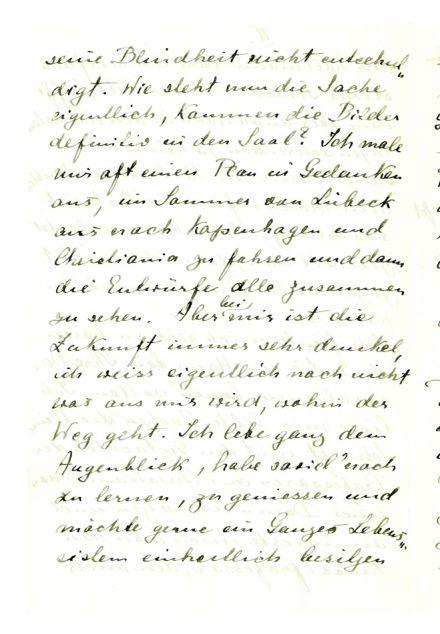 seine Blindheit nicht entschul„
digt. Wie steht nun die Sache
eigentlich, kommen die Bilder
definitiv in den Saal? Ich male
mir oft einen Plan in Gedanken
aus, im Sommer von Lübeck
aus nach Kopenhagen und
Christiania zu fahren und dann
die Entwürfe alle zusammen
zu sehen. Aber bei mir ist die
Zukunft immer sehr dunkel,
ich weiss eigentlich noch nicht
was aus mir wird, wohin der
Weg geht. Ich lebe ganz dem
Augenblick, habe soviel noch
zu lernen, zu geniessen und
möchte gerne ein Ganzes Lebens„
sistem einheitlich besitzen